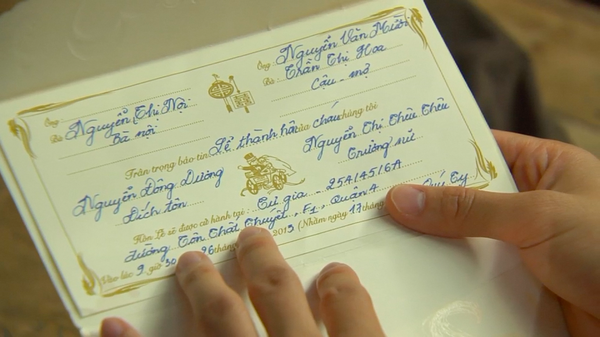 Ông Nguyễn Văn Mười
Bà: Trần Thị Hoa
Cậu - mợ
Ông:
Bà Nguyễn Thị Nội
Bà nội
Trân trọng báo tin Lễ thành hôn của cháu chúng tôi
Nguyễn Đông Dương
Đích tôn
Nguyễn Thị Thù Thửu
Trưởng nữ
Hôn Lễ sẽ được cử hành tại: Tư gia - 254/45/6A
đường Tôn Thất Thuyết, F1, Quận 4
Vào lúc 9 giờ 30 26 tháng 2013 (Nhằm ngày 17 tháng Quý Tỵ